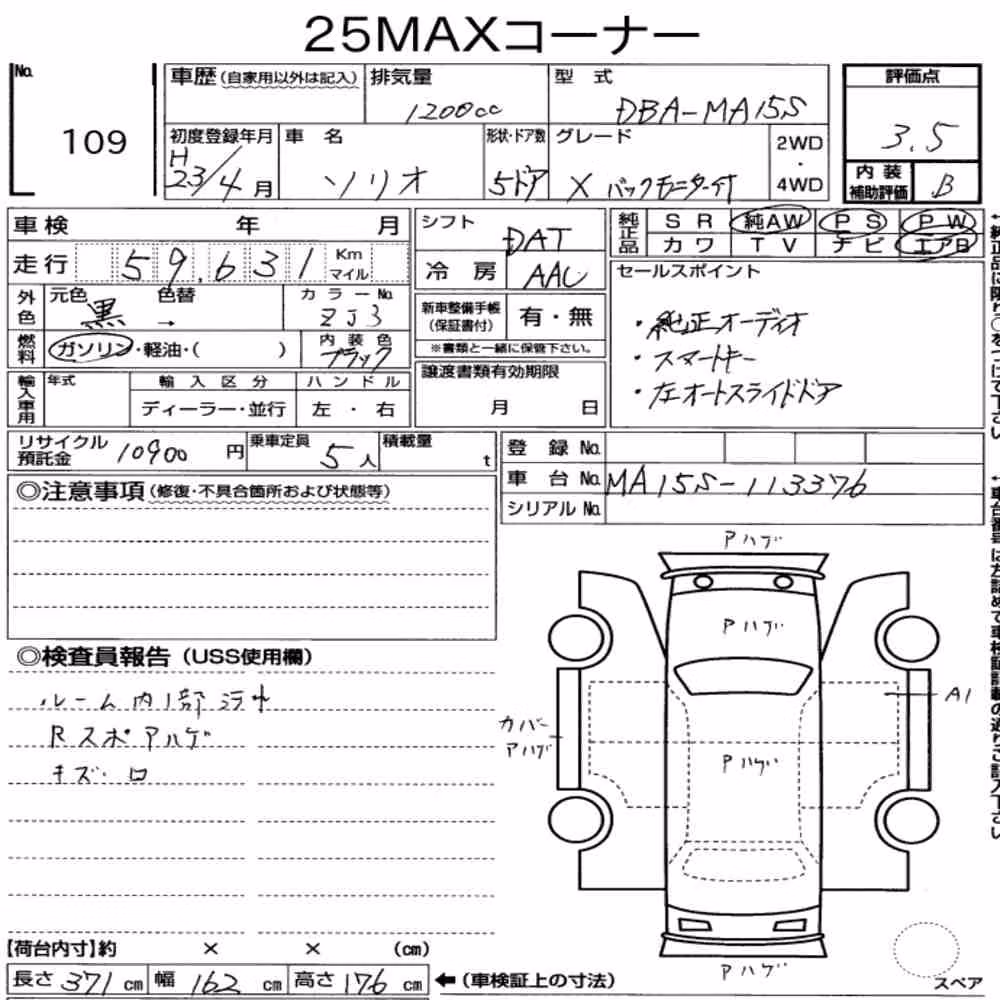 25MAXコーナー
No. 109
車歴(自家用以外は記入) 排気量 1200cc 型式 DBA-MA15S 評価点 3.5
初度登録年月 H23/4月 車名 ソリオ 形状・ドア数 5ドア グレード X バックモニター付 2WD・4WD 内装補助評価 B
車検 年 月 シフト DAT 純正品 SR 純AW PS PW
カワ TV ナビ エアB
走行 59,631 Km マイル 冷房 AAC
セールスポイント
外色 元色 黒 色替 → カラーNo. ZJ3 新車整備手帳(保証書付) 有・無
・純正オーディオ
※書類と一緒に保管下さい。
燃料 ガソリン・軽油・( ) 内装色 ブラック
・スマートキー
輸入車用 年式 輸入区分 ハンドル 譲渡書類有効期限
・左オートスライドドア
ディーラー・並行 左・右 月 日
リサイクル預託金 10900円 乗車定員 5人 積載量 t 登録No.
車台No. MA15S-113376
シリアルNo.
◎注意事項(修復・不具合箇所および状態等)
Pハゲ
Pハゲ
◎検査員報告(USS使用欄)
ルーム内1部汚れ
A1
Rスポアハゲ
カバー
アハゲ
Pハゲ
キズ・凹
Pハゲ
【荷台内寸】約 × × (cm)
長さ 371 cm 幅 162 cm 高さ 176 cm ←(車検証上の寸法)
スペア